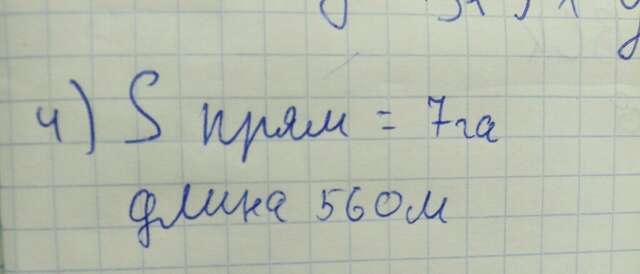 4) S прям = 7га
длина 560м